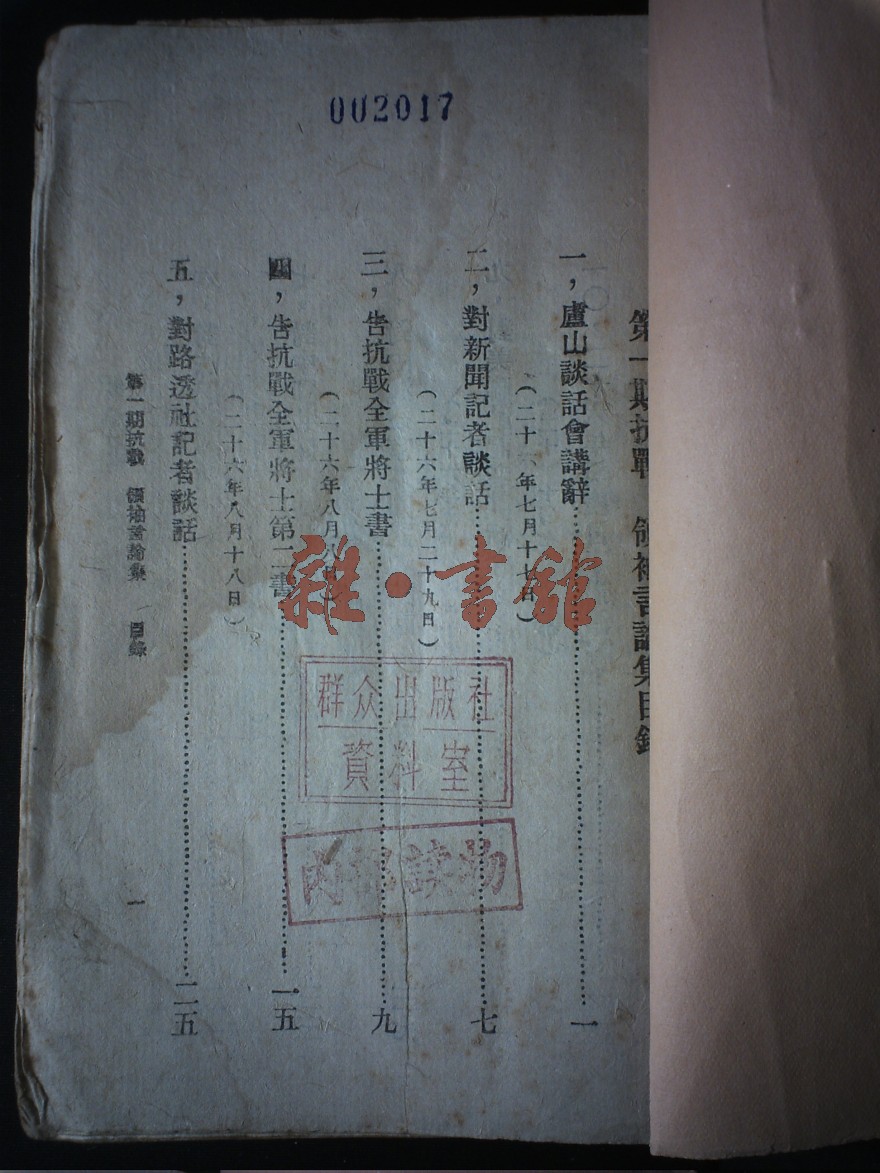 002017
第一期抗戰 領袖言論集目錄
一，盧山談話會講辭……一
（二十六年七月十七日）
二，對新聞記者談話……七
（二十六年七月二十九日）
三，告抗戰全軍將士書……九
（二十六年八月八日）
四，告抗戰全軍將士第二書……一五
（二十六年八月十八日）
五，對路透社記者談話……二五
第一期抗戰 領袖言論集 目錄
一
雜·書館
群众出版社
資料室
内部读物